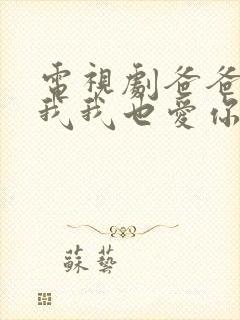 電視劇爸爸
我我也愛你
蘇藝